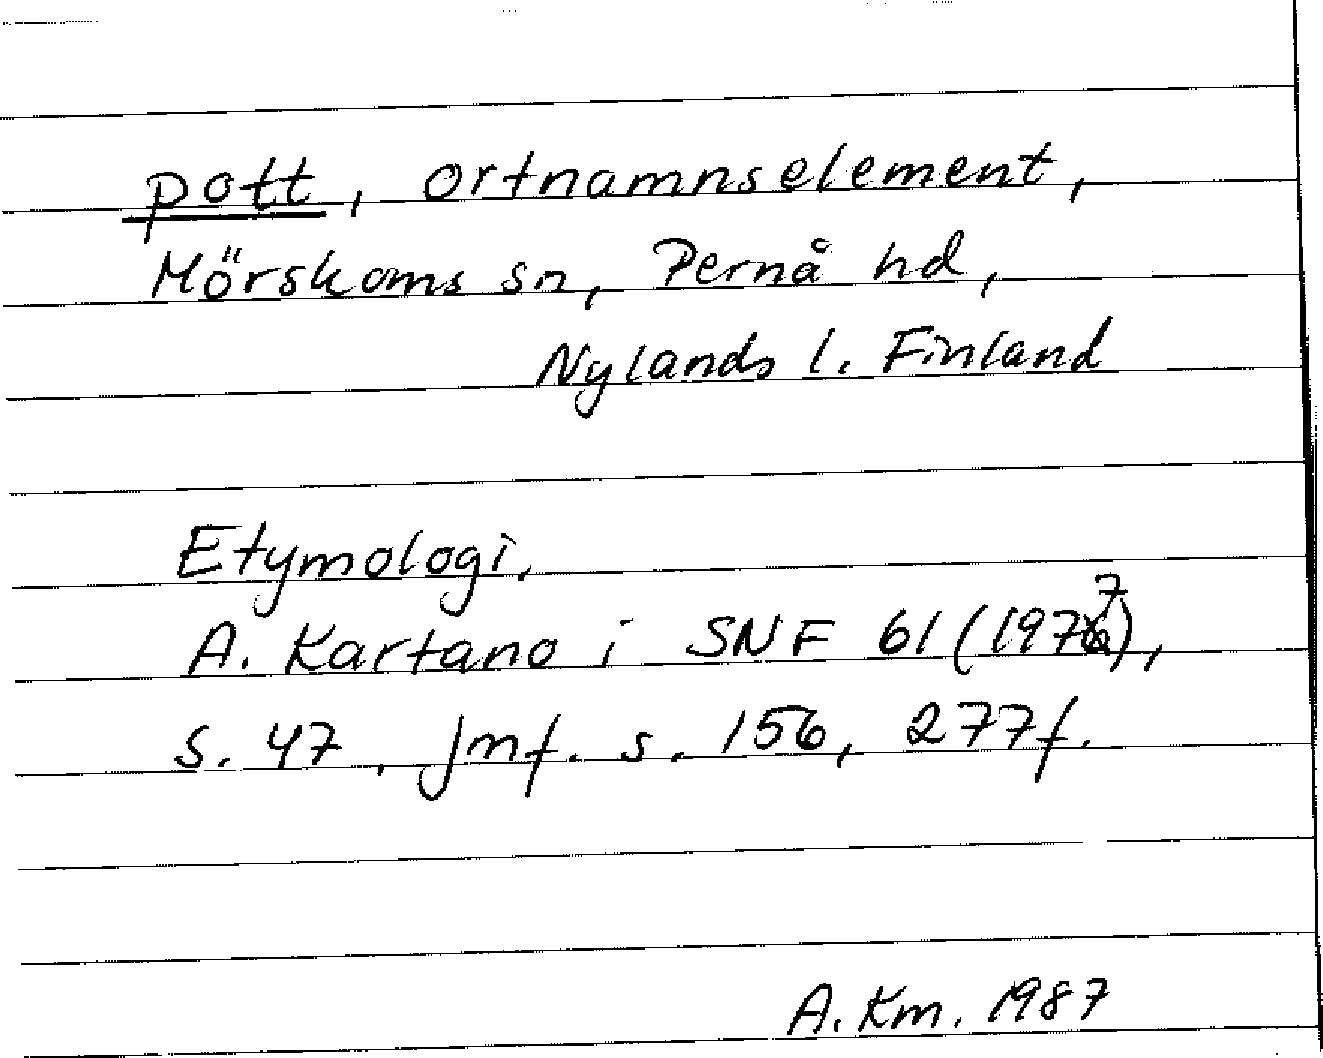 pott, ortnamnselement,
Mörskoms sn, Pernå hd,
Nylands l. Finland
Etymologi.
A. Kartano i SNF 61 (1977),
s. 47, jmf. s. 156, 277f.
A. Km. 1987